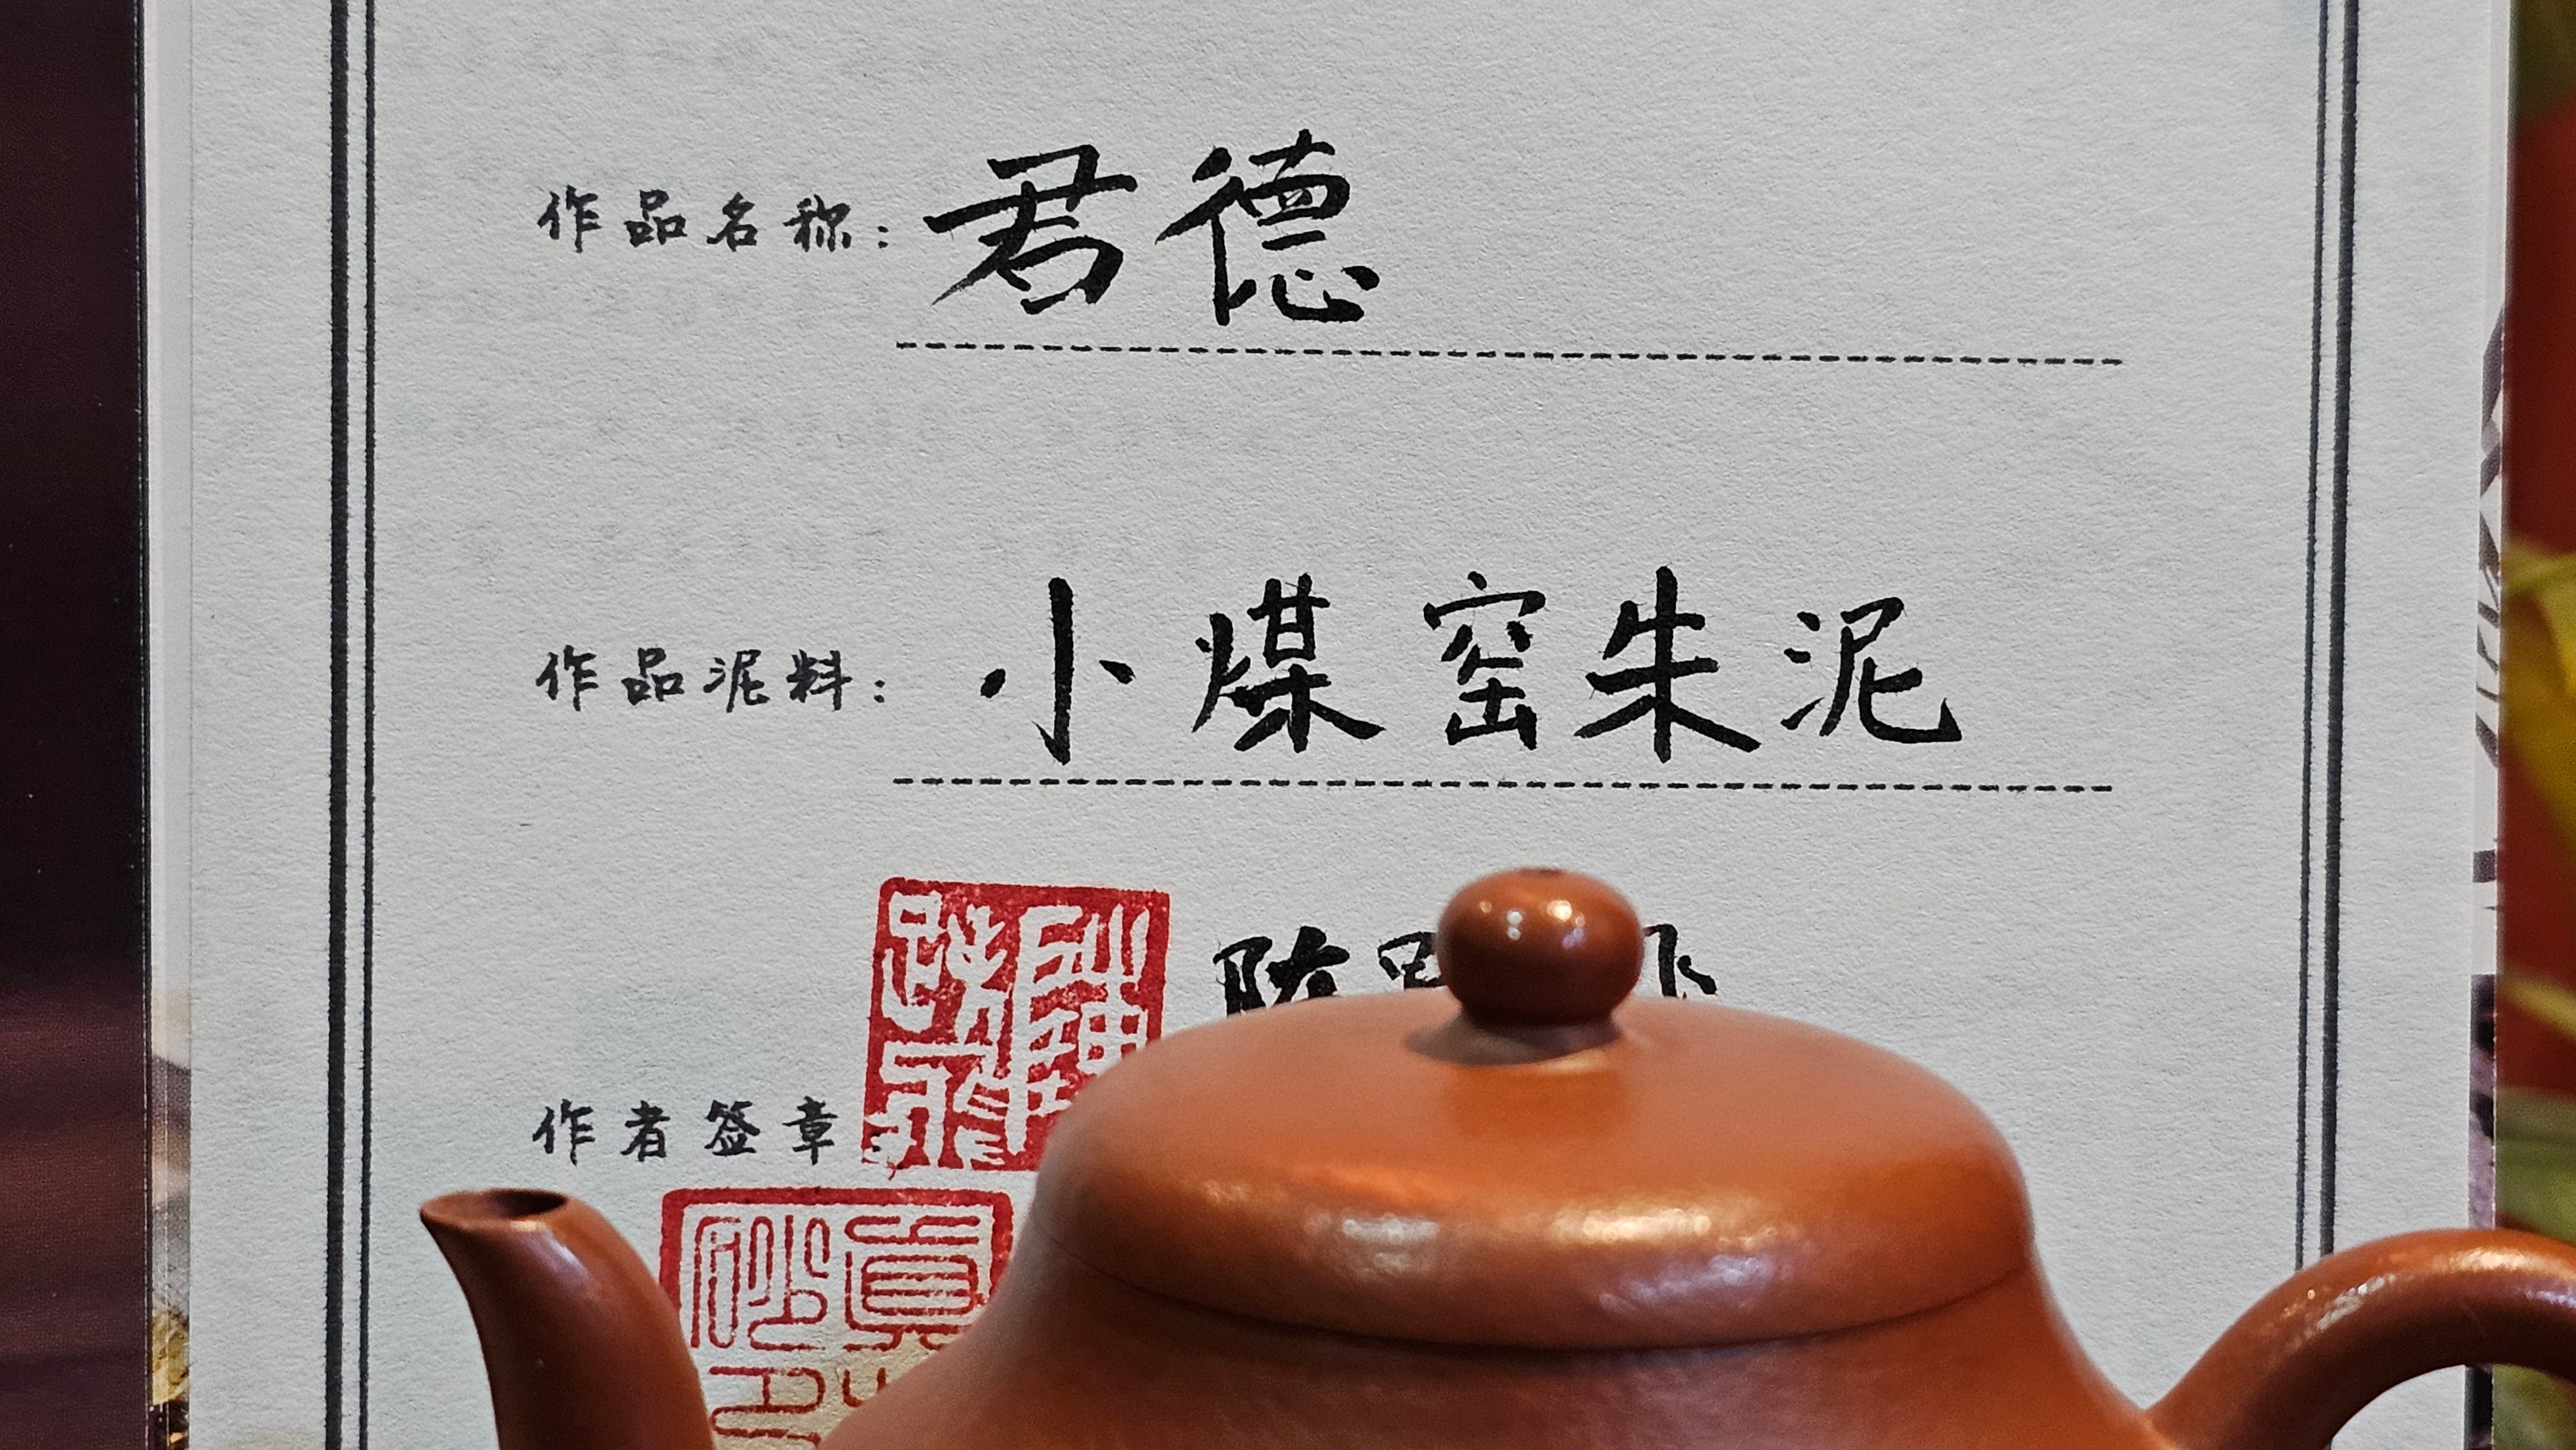 作品名称：君德
作品泥料：小煤窑朱泥
陈
作者签章
真
砂